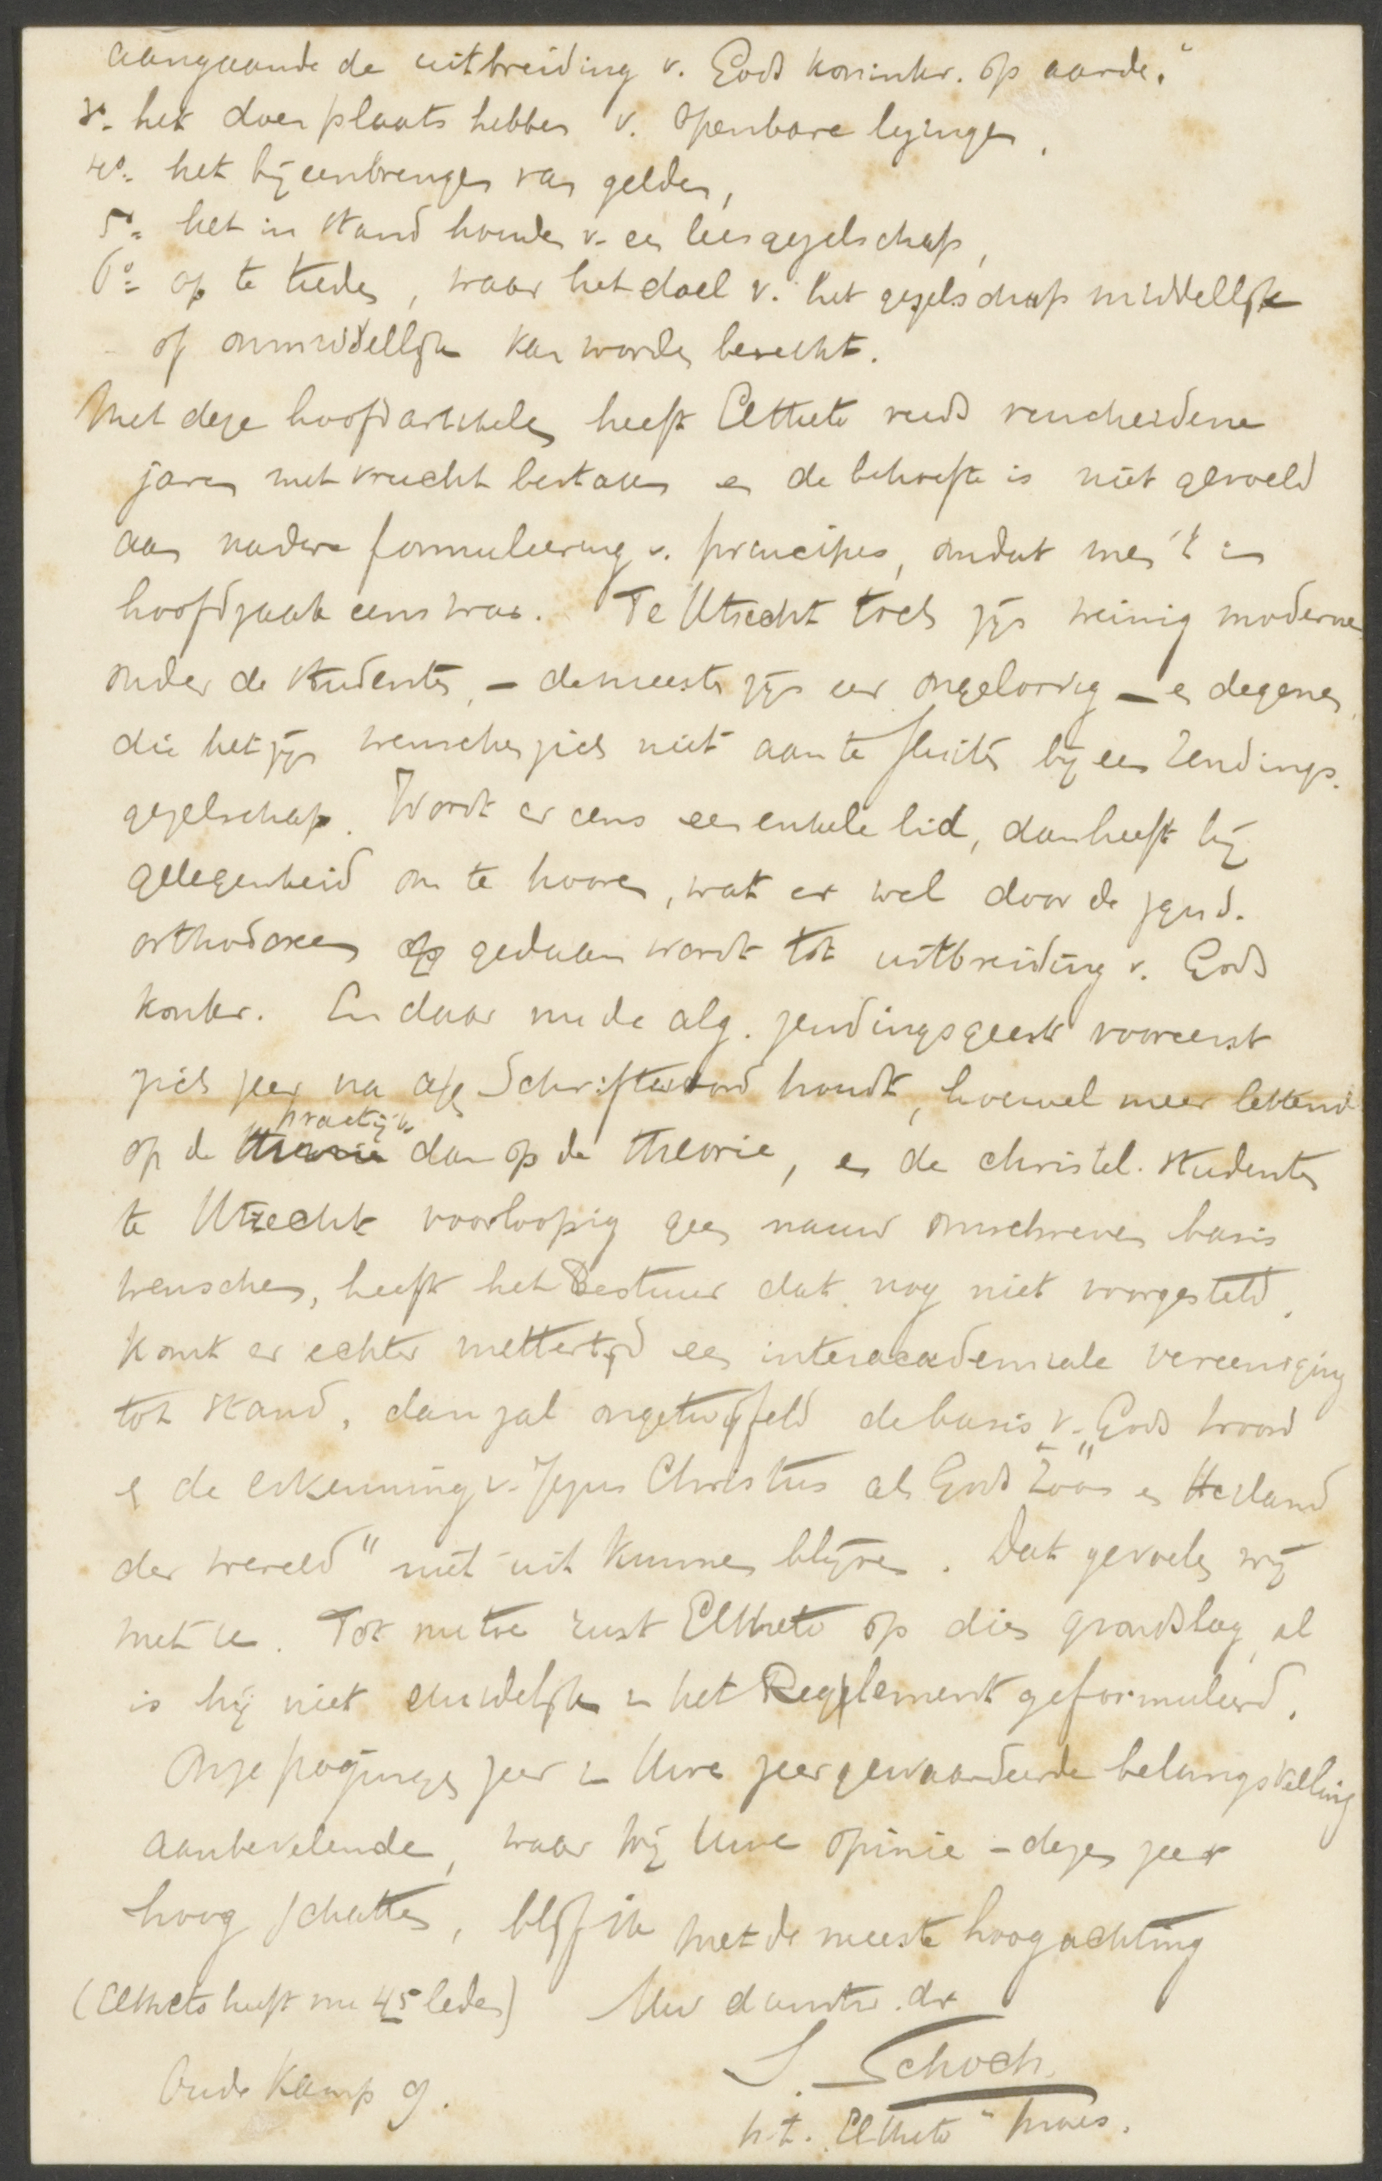 aangaande de uitbreiding v. Gods koninkr. op aarde."
3º. het doen plaats hebben v. openbare lezingen,
4º. het bijeenbrengen van gelden,
5º. het in stand houden v. een leesgezelschap,
6º. op te treden, waar het doel v. het gezelschap middellijk
of onmiddellijk kan worden bereikt.
Met deze hoofdartikelen heeft Eltheto reeds verscheidene
jaren met vrucht bestaan en de behoefte is niet gevoeld
aan nadere formuleering v. principes, omdat men 't in
hoofdzaak eens was. Te Utrecht toch zijn weinig modernen
onder de studenten, – de meesten zijn eer ongeloovig – en degenen,
die het zijn wenschen zich niet aan te sluiten bij een Zendings-
gezelschap. Wordt er eens een enkele lid, dan heeft hij
gelegenheid om te hooren, wat er wel door de zgnd.
orthodoxen gedaan wordt tot uitbreiding v. Gods
konkr. En daar nu de alg. zendingsgeest vooreerst
zich zeer na aan Schriftwoord houdt, hoewel meer lettend
op de practijk dan op de theorie, en de christel. studenten
te Utrecht voorloopig geen nauw omschreven basis
wenschen, heeft het Bestuur dat nog niet voorgesteld.
Komt er echter mettertijd een interacademiale vereeniging
tot stand, dan zal ongetwijfeld de basis v. "Gods woord
en de erkenning v. Jezus Christus als Gods Zoon en Heiland
der wereld" niet uit kunnen blijven. Dat gevoelen wij
met U. Tot nu toe rust Eltheto op dien grondslag, al
is hij niet duidelijk in het Reglement geformuleerd.
Onze pogingen zeer in Uwe zeer gewaardeerde belangstelling
aanbevelende, waar wij Uwe opinie – dezen zeer
hoog schatten, blijf ik met de meeste hoogachting
(Eltheto heeft nu 45 leden) Uw dwntr. dr
S. Schoch.
Oude Kamp 9.
h.t. "Eltheto" praes.